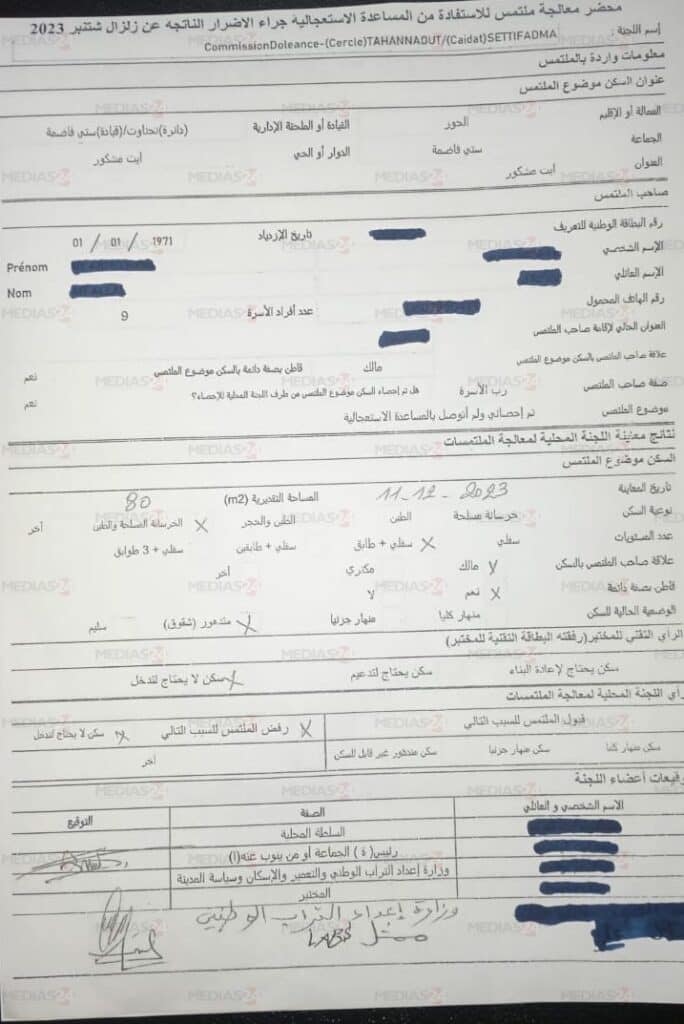 محضر معالجة ملتمس للاستفادة من المساعدة الاستعجالية جراء الاضرار الناتجه عن زلزال شتنبر 2023
إسم اللجنة : CommissionDoleance-(Cercle)TAHANNAOUT/(Caidat)SETTIFADMA
معلومات واردة بالملتمس
عنوان السكن موضوع الملتمس
العمالة أو الإقليم الحوز القيادة أو الملحقة الإدارية (دائرة)تحناوت/(قيادة)ستي فاضمة
الجماعة ستي فاضمة الدوار أو الحي أيت مشكور
العنوان أيت مشكور
صاحب الملتمس
رقم البطاقة الوطنية للتعريف تاريخ الإزدياد 01 / 01 / 1971
الإسم الشخصي Prénom
الإسم العائلي Nom
رقم الهاتف المحمول عدد أفراد الأسرة 9
العنوان الحالي لإقامة صاحب الملتمس
علاقة صاحب الملتمس بالسكن موضوع الملتمس مالك قاطن بصفة دائمة بالسكن موضوع الملتمس نعم
صفة صاحب الملتمس رب الأسرة هل تم إحصاء السكن موضوع الملتمس من طرف اللجنة المحلية للإحصاء؟ نعم
موضوع الملتمس تم إحصائي ولم أتوصل بالمساعدة الاستعجالية
نتائج معاينة اللجنة المحلية لمعالجة الملتمسات
السكن موضوع الملتمس
تاريخ المعاينة 11-12-2023 المساحة التقديرية (m2) 80
نوعية السكن خرسانة مسلحة الطين الطين والحجر X الخرسانة المسلحة والطين آخر
عدد المستويات سفلي X سفلي + طابق سفلي + طابقين سفلي + 3 طوابق
علاقة صاحب الملتمس بالسكن X مالك مكتري آخر
قاطن بصفة دائمة X نعم لا
الوضعية الحالية للسكن منهار كليا منهار جزئيا X متدهور (شقوق) سليم
الرأي التقني للمختبر(رفقته البطاقة التقنية للمختبر)
سكن يحتاج لإعادة البناء سكن يحتاج لتدعيم X سكن لا يحتاج لتدخل
رأي اللجنة المحلية لمعالجة الملتمسات
قبول الملتمس للسبب التالي X رفض الملتمس للسبب التالي X سكن لا يحتاج لتدخل
سكن منهار كليا سكن منهار جزئيا سكن متدهور غير قابل للسكن آخر
توقيعات أعضاء اللجنة
الاسم الشخصي و العائلي الصفة التوقيع
السلطة المحلية
رئيس(ة ) الجماعة أو من ينوب عنه(ا)
وزارة إعداد التراب الوطني والتعمير والإسكان وسياسة المدينة
المختبر
وزارة إعداد التراب الوطني
ممثل